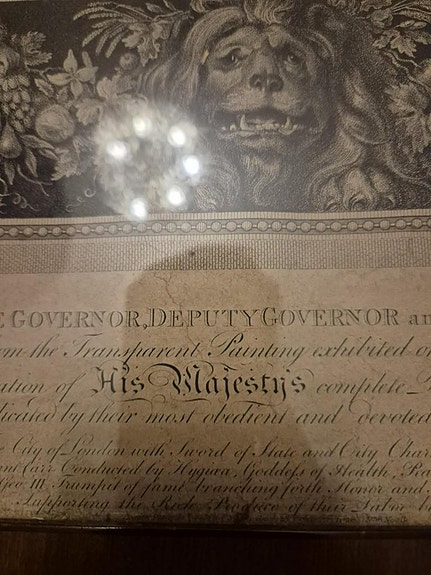 E GOVERNOR, DEPUTY GOVERNOR an
om the Transparent Painting exhibited on
ation of His Majestys complete
dicated by their most obedient and devoted
City of London with Sword of State and City Char
Carr Conducted by Hygiea, Goddess of Health, Pea
Geo. III. Trumpet of fame branching forth Honor and
Supporting the Rich Produce of their Labor